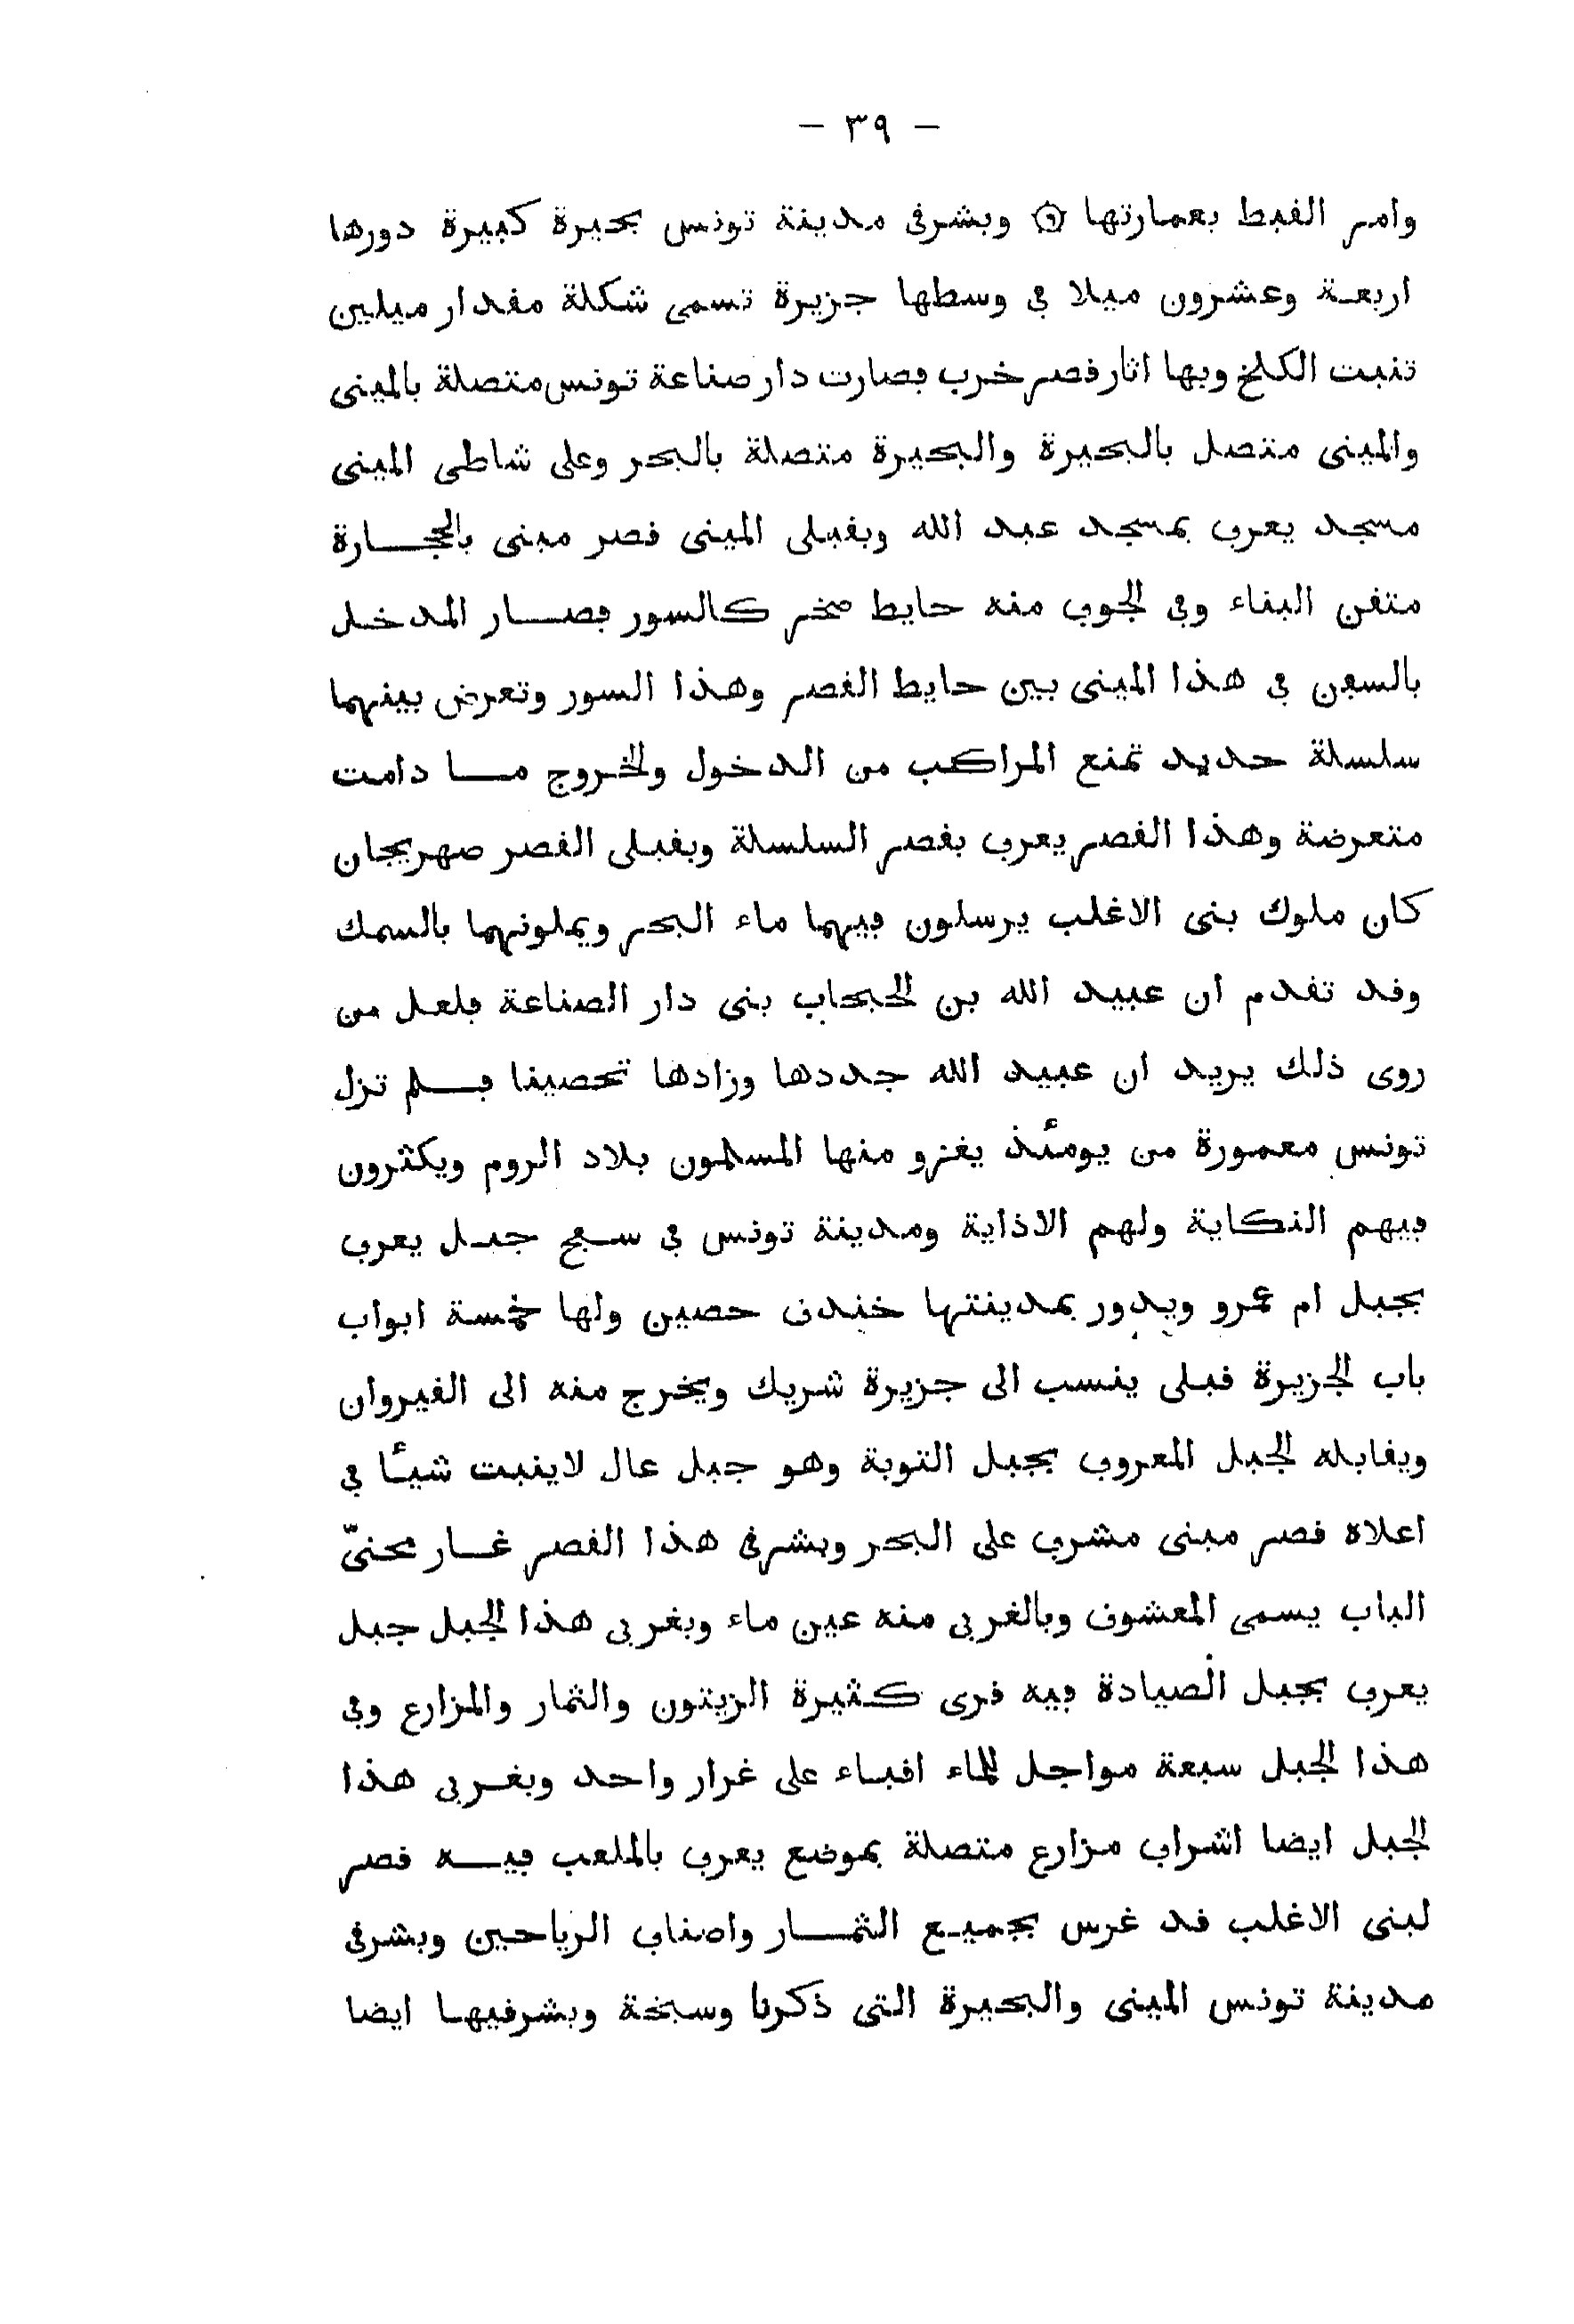 — ٣٩ —
وامر القبط بعمارتها ۞ وبشرقى مدينة تونس بحيرة كبيرة دورها
اربعة وعشرون ميلا فى وسطها جزيرة تسمى شكلة مقدار ميلين
تنبت الكلخ وبها اثار قصر خرب فصارت دار صناعة تونس متصلة بالمينى
والمينى متصل بالبحيرة والبحيرة متصلة بالبحر وعلى شاطى المينى
مسجد يعرف بمسجد عبد الله وبقبلى المينى قصر مبنى بالحجارة
متقن البناء وفى الجوف منه حايط صخر كالسور فصار المدخل
بالسفن فى هذا المينى بين حايط القصر وهذا السور وتعرض بينهما
سلسلة حديد تمنع المراكب من الدخول والخروج ما دامت
متعرضة وهذا القصر يعرف بقصر السلسلة وبقبلى القصر صهريجان
كان ملوك بنى الاغلب يرسلون فيهما ماء البحر ويملونهما بالسمك
وقد تقدم ان عبيد الله بن الحبحاب بنى دار الصناعة فلعل من
روى ذلك يريد ان عبيد الله جددها وزادها تحصينا فلم تزل
تونس معمورة من يومئذ يغزو منها المسلمون بلاد الروم ويكثرون
فيهم النكاية ولهم الاذاية ومدينة تونس فى سفح جبل يعرف
بجبل ام عمرو ويدور بمدينتها خندق حصين ولها خمسة ابواب
باب الجزيرة قبلى ينسب الى جزيرة شريك ويخرج منه الى القيروان
ويقابله الجبل المعروف بجبل التوبة وهو جبل عال لا ينبت شيئا فى
اعلاه قصر مبنى مشرف على البحر وبشرقى هذا القصر غار محنىّ
الباب يسمى المعشوق وبالغربى منه عين ماء وبغربى هذا الجبل جبل
يعرف بجبل الصيادة فيه قرى كثيرة الزيتون والثمار والمزارع وفى
هذا الجبل سبعة مواجل للماء اقباء على غرار واحد وبغربى هذا
الجبل ايضا اشراف مزارع متصلة بموضع يعرف بالملعب فيه قصر
لبنى الاغلب قد غرس بجميع الثمار واصناف الرياحين وبشرقى
مدينة تونس المينى والبحيرة التى ذكرنا وسبخة وبشرقيها ايضا